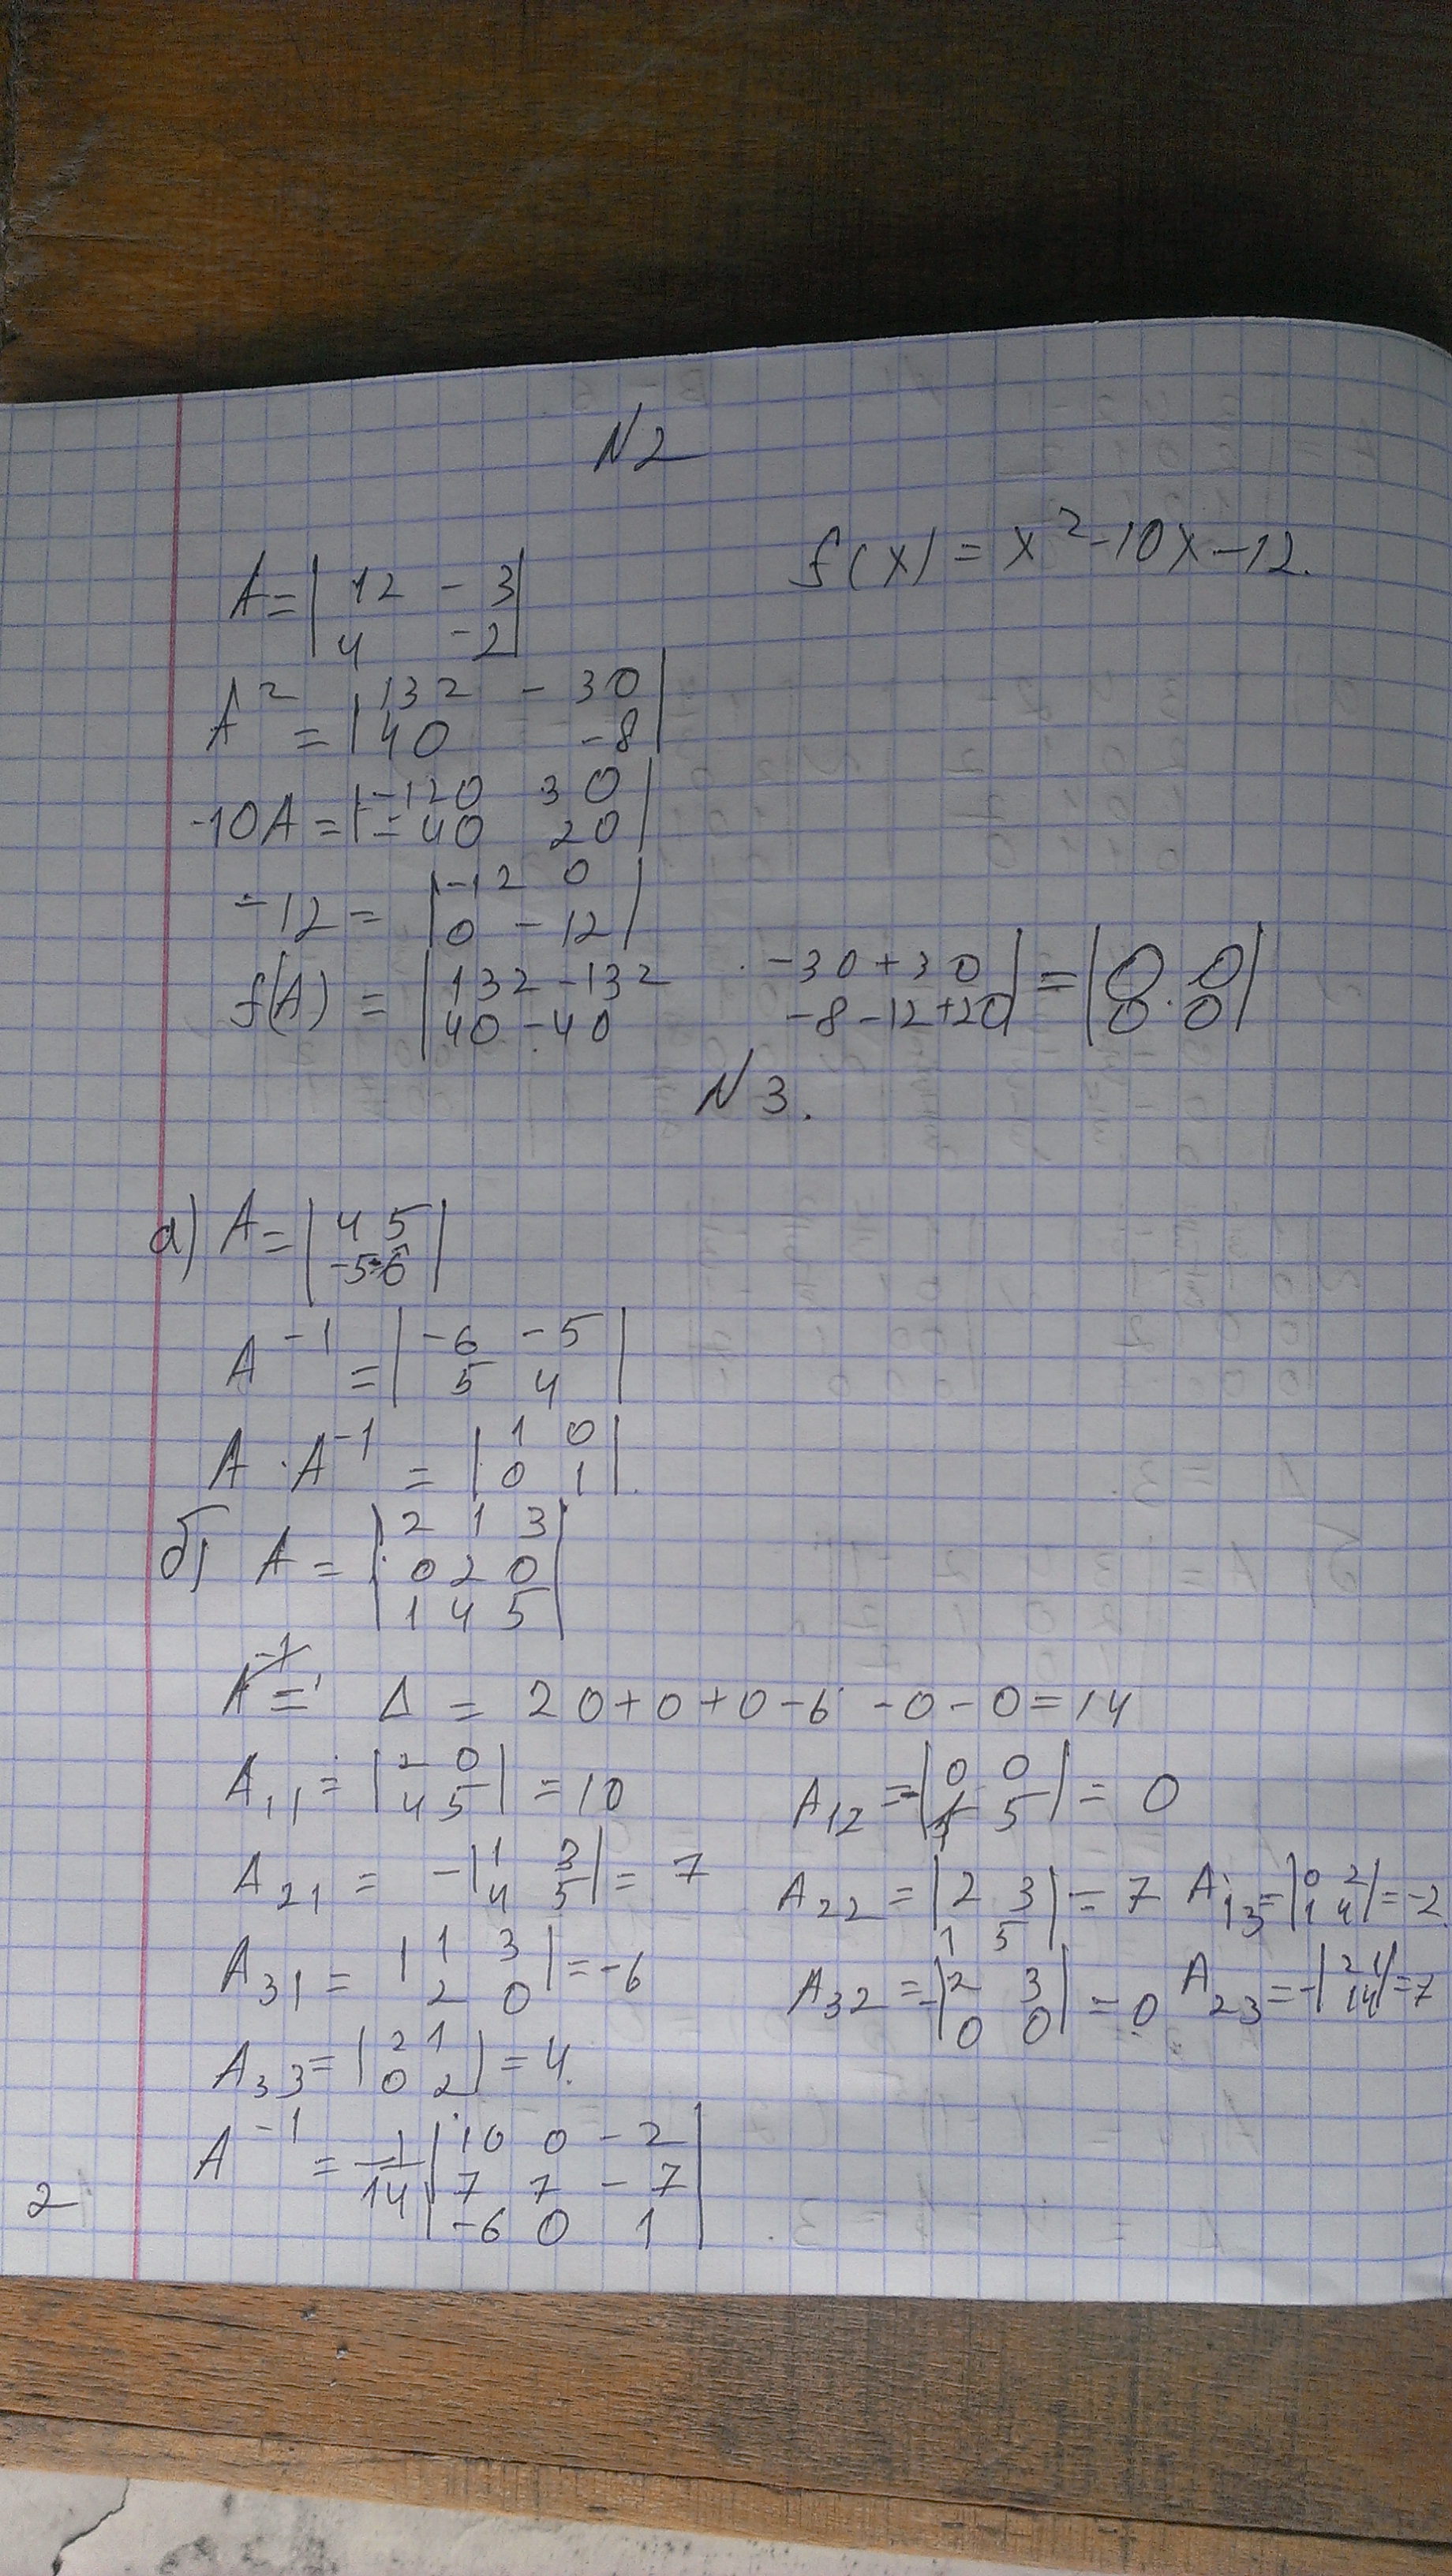 N2
A = | 12 -3 | f(x) = x² - 10x - 12.
| 4 -2 |
A² = | 132 -30 |
| 40 -8 |
-10A = | -120 30 |
| -40 20 |
-12 = | -12 0 |
| 0 -12 |
f(A) = | 132-132 -30+30 | = | 0 0 |
| 40-40 -8-12+20 | | 0 0 |
N3.
а) A = | 4 5 |
| -5 -6 |
A⁻¹ = | -6 -5 |
| 5 4 |
A · A⁻¹ = | 1 0 |
| 0 1 |.
б) A = | 2 1 3 |
| 0 2 0 |
| 1 4 5 |
A⁻¹ = Δ = 20+0+0-6-0-0=14
A₁₁ = | 2 0 | = 10 A₁₂ = -| 0 0 | = 0
| 4 5 | | 1 5 |
A₂₁ = -| 1 3 | = 7 A₂₂ = | 2 3 | = 7 A₁₃ = | 0 2 | = -2
| 4 5 | | 1 5 | | 1 4 |
A₃₁ = | 1 3 | = -6 A₃₂ = -| 2 3 | = 0 A₂₃ = -| 2 1 | = 7
| 2 0 | | 0 0 | | 1 4 |
A₃₃ = | 2 1 | = 4.
| 0 2 |
A⁻¹ = 1/14 | 10 0 -2 |
| 7 7 -7 |
| -6 0 1 |
2